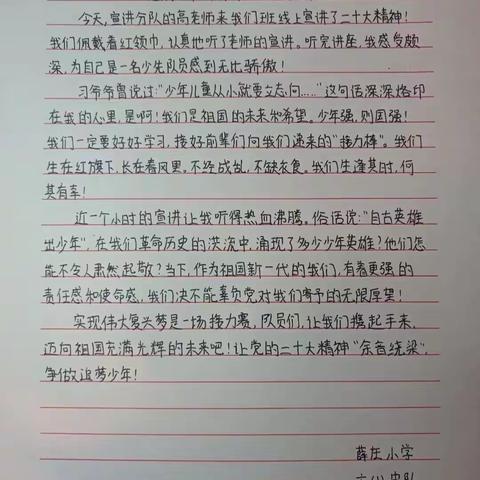 今天，宣讲分队的高老师来我们班线上宣讲了二十大精神！
我们佩戴着红领巾，认真地听了老师的宣讲。听完讲座，我感受颇
深，为自己是一名少先队员感到无比骄傲！
习爷爷曾说过：“少年儿童从小就要立志向……”这句话深深烙印
在我的心里，是啊！我们是祖国的未来和希望。少年强，则国强！
我们一定要好好学习，接好前辈们向我们递来的“接力棒”。我们
生在红旗下，长在春风里。不经战乱，不缺衣食。我们生逢其时，何
其有幸！
近一个小时的宣讲让我听得热血沸腾。俗话说：“自古英雄
出少年”，在我们革命历史的洪流中，涌现了多少少年英雄？他们怎
能不令人肃然起敬？当下，作为祖国新一代的我们，有着更强的
责任感和使命感，我们决不能辜负党对我们寄予的无限厚望！
实现伟大复兴梦是一场接力赛，队员们，让我们携起手来，
迈向祖国充满光辉的未来吧！让党的二十大精神“余音绕梁”，
争做追梦少年！
薛庄小学